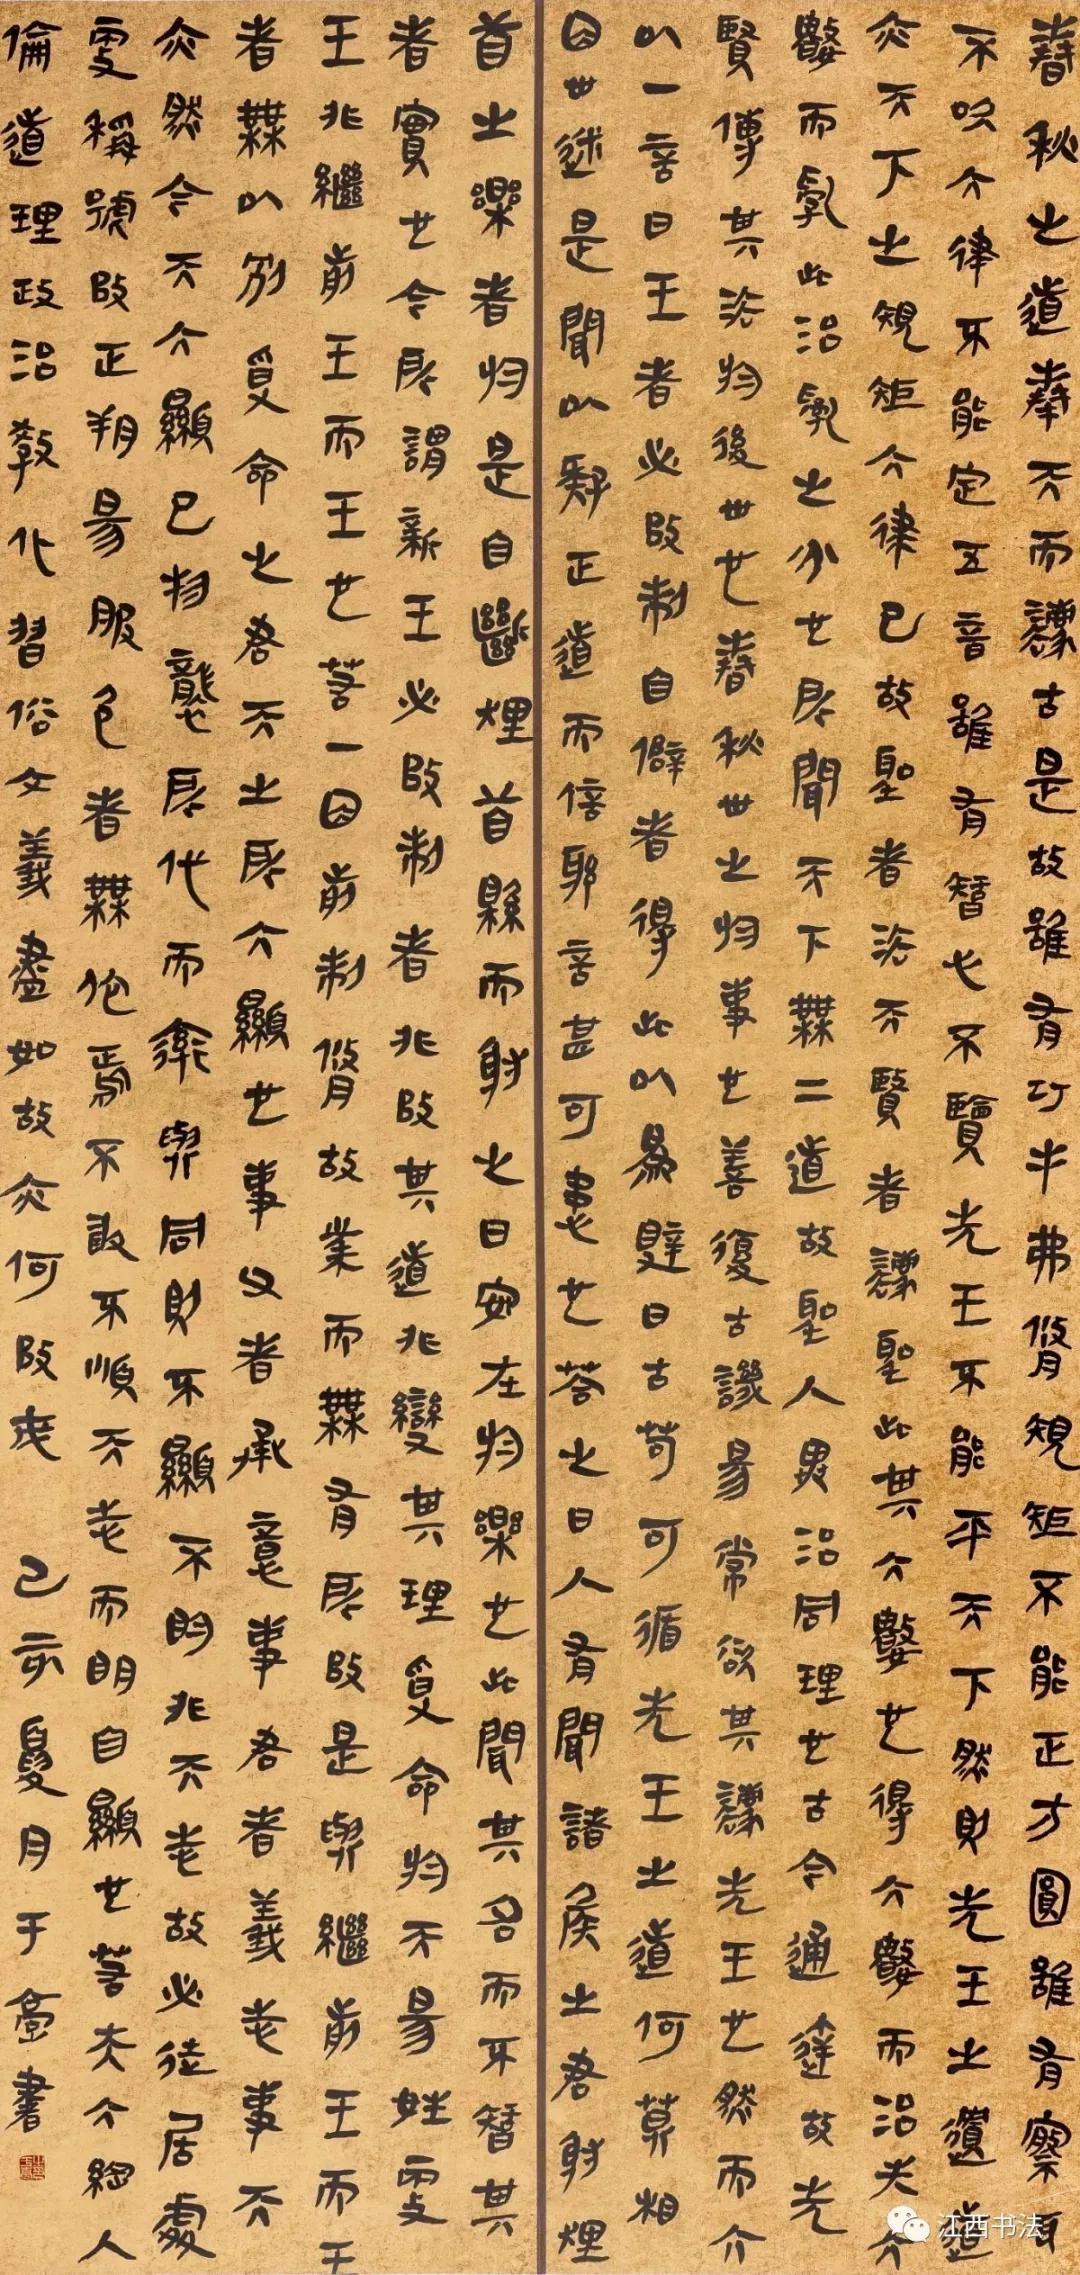 春秋之道奉天而法古是故雖有巧手弗修規矩不能正方圓雖有察耳
不吹六律不能定五音雖有智心不覽先王不能平天下然則先王之遺道
亦天下之規矩六律已故聖者法天賢者法聖此其大數也得大數而治失大
數而亂此治亂之分也所聞天下無二道故聖人異治同理也古今通達故先
賢傳其法於後世也春秋世之於事也善復古譏易常欲其法先王也然而介
以一言曰王者必改制自僻者得此以為辟曰古苟可循先王之道何莫相
因世迷是聞以疑正道而信邪言甚可患也答之曰人有聞諸侯之君射貍
首之樂者於是自斷貍首縣而射之曰安在於樂也此聞其名而不智其
者實也今所謂新王必改制者非改其道非變其理受命於天易姓更
王非繼前王而王也若一因前制修故業而無有所改是與繼前王而王
者無以別受命之君天之所大顯也事父者承意事君者義志事天
亦然今天大顯已物襲所代而率與同則不顯不明非天志故必徙居處
更稱號改正朔易服色者無他焉不敢不順天志而明自顯也若夫大綱人
倫道理政治教化習俗文義盡如故亦何改哉 己亥夏月于亭書
江西书法